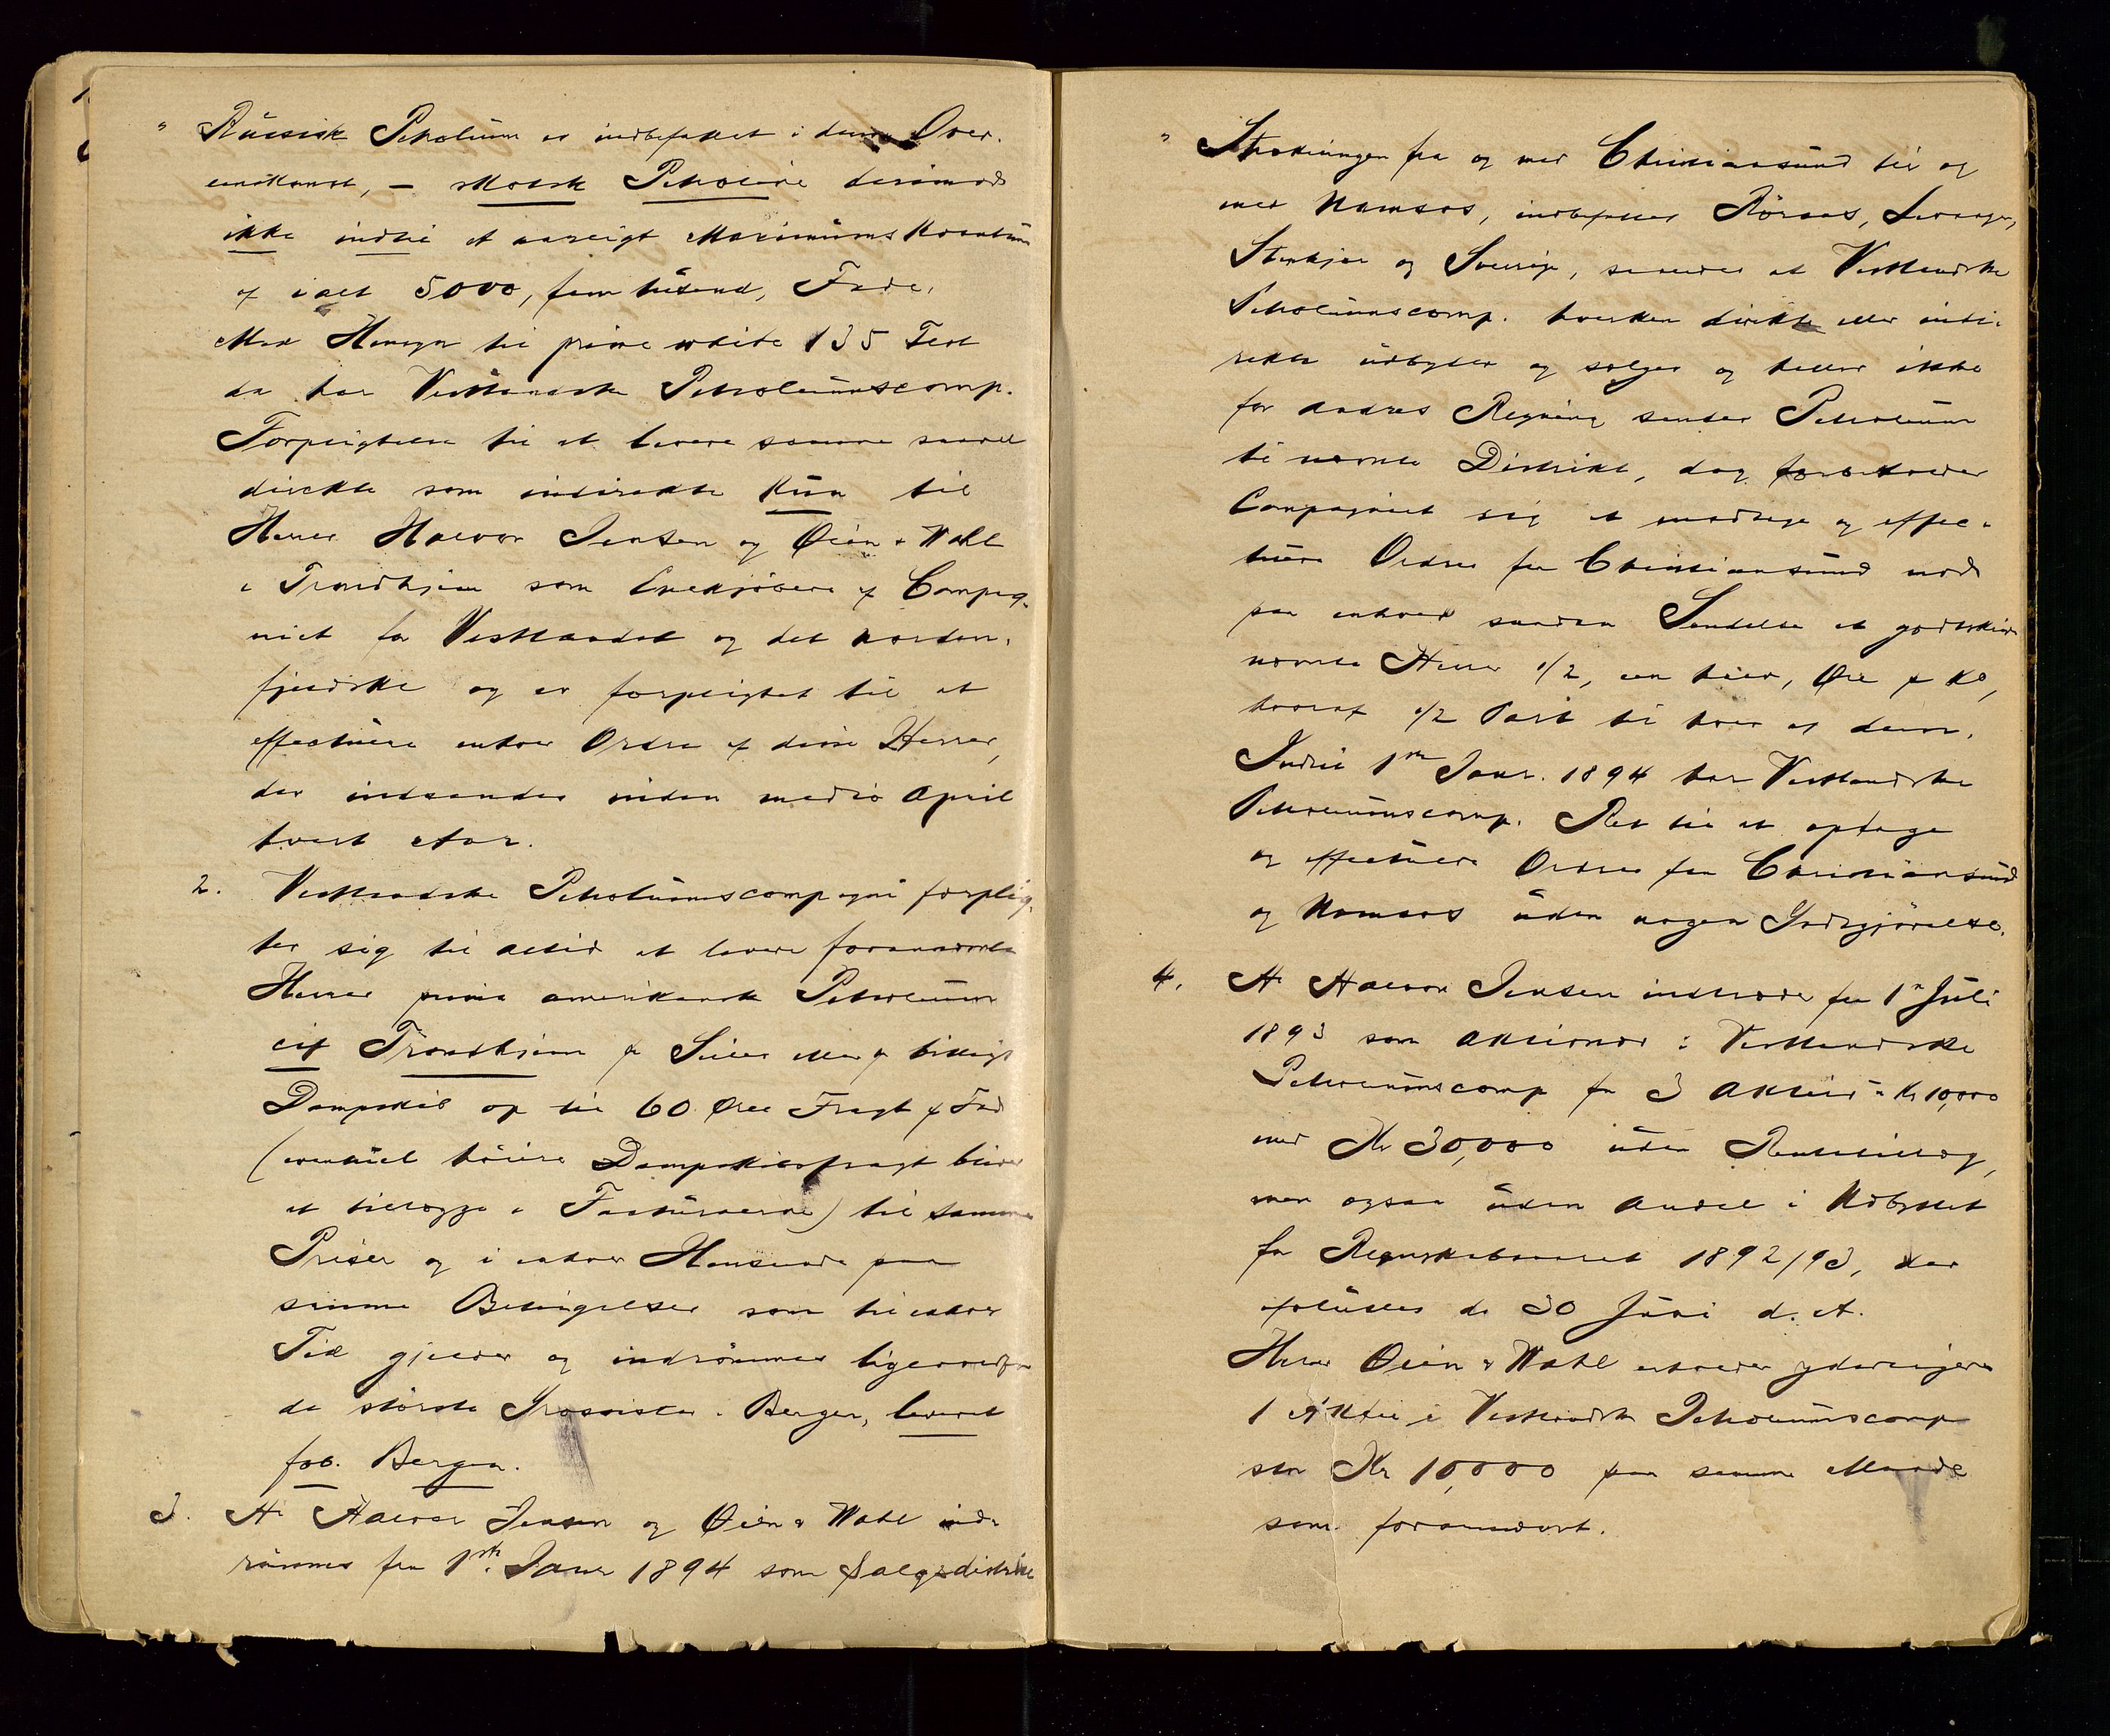 " Russisk Petroleum er indbefattet i denne Over-
enskomst, – skotsk Petroleum derimod
ikke indtil et aarligt Maximums Kvantum
af ialt 5000, fem tusend, Fade.
Med Hensyn til prime white 135 Test
da har Vestlandske Petroleumscomp.
Forpligtelse til at levere samme saavel
direkte som indirekte kun til
Herrer Halvor Jensen og Øien & Wahl
i Trondhjem som Enekjøbere af Compag-
niet for Vestlandet og det norden-
fjeldske og er forpligtet til at
effectuere enhver Ordre af disse Herrer,
der indsendes inden medio April
hvert Aar.
2. Vestlandske Petroleumscompagni forplig-
ter sig til altid at levere forannævnte
Herrer prima amerikansk Petroleum
cif Trondhjem pr Seiler eller pr billigst
Dampskib op til 60 Øre Fragt pr Fad
(eventuel høiere Dampskibsfragt bliver
at tillægge i Fakturaerne) til samme
Priser og i enhver Henseende paa
samme Betingelser som til enhver
Tid gjælder og indrømmes ligeoverfor
de største Grossister i Bergen, leveret
fob. Bergen.
3. Hr Halvor Jensen og Øien & Wahl ind-
rømmes fra 1ste Janr 1894 som Salgsdistrikt
" Strækningen fra og med Christiansund til og
med Namsos, indbefattet Röraas, Levanger,
Stenkjær og Sverige, saaledes at Vestlandske
Petroleumscomp. hverken direkte eller indi-
rekte udbyder og sælger og heller ikke
for andres Regning sender Petroleum
til nævnte Distrikt, dog forbeholder
Compagniet sig at modtage og effec-
tuere Ordres fra Christiansund mod
paa enhver saadan Sendelse at godtskrive
nævnte Herrer 1/2, en halv, Øre pr Ko,
hvoraf 1/2 Part til hver af dem.
Indtil 1ste Janr. 1894 har Vestlandske
Petroleumscomp. Ret til at optage
og effectuere Ordres fra Christiansund
og Namsos uden nogen Godtgjörelse.
4. Hr Halvor Jensen indtræder fra 1ste Juli
1893 som Aktionær i Vestlandske
Petroleumscomp for 3 Aktier à Kr 10,000
med Kr 30,000 uden Rentetillæg,
men ogsaa uden Andel i Udbyttet
for Regnskabsaaret 1892/93, der
afsluttes de 30 Juni d. A.
Herrer Øien & Wahl erholder yderligere
1 Aktie i Vestlandske Petroleumscomp
stor Kr 10,000 paa samme Maade
som forannævnt.